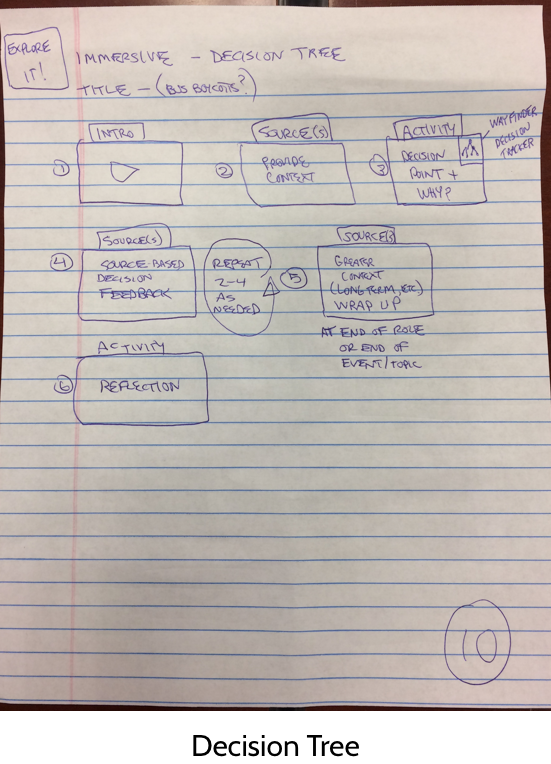 EXPLORE
IT!
IMMERSIVE - DECISION TREE
TITLE - (BUS BOYCOTTS?)
INTRO
1
SOURCE(S)
2
PROVIDE
CONTEXT
ACTIVITY
3
DECISION
POINT +
WHY?
WAYFINDER
DECISION
TRACKER
SOURCE(S)
4
SOURCE-BASED
DECISION
FEEDBACK
REPEAT
2-4
AS
NEEDED
SOURCE(S)
5
GREATER
CONTEXT
(LONG TERM, ETC)
WRAP UP
AT END OF ROLE
OR END OF
EVENT/TOPIC
ACTIVITY
6
REFLECTION
10
Decision Tree